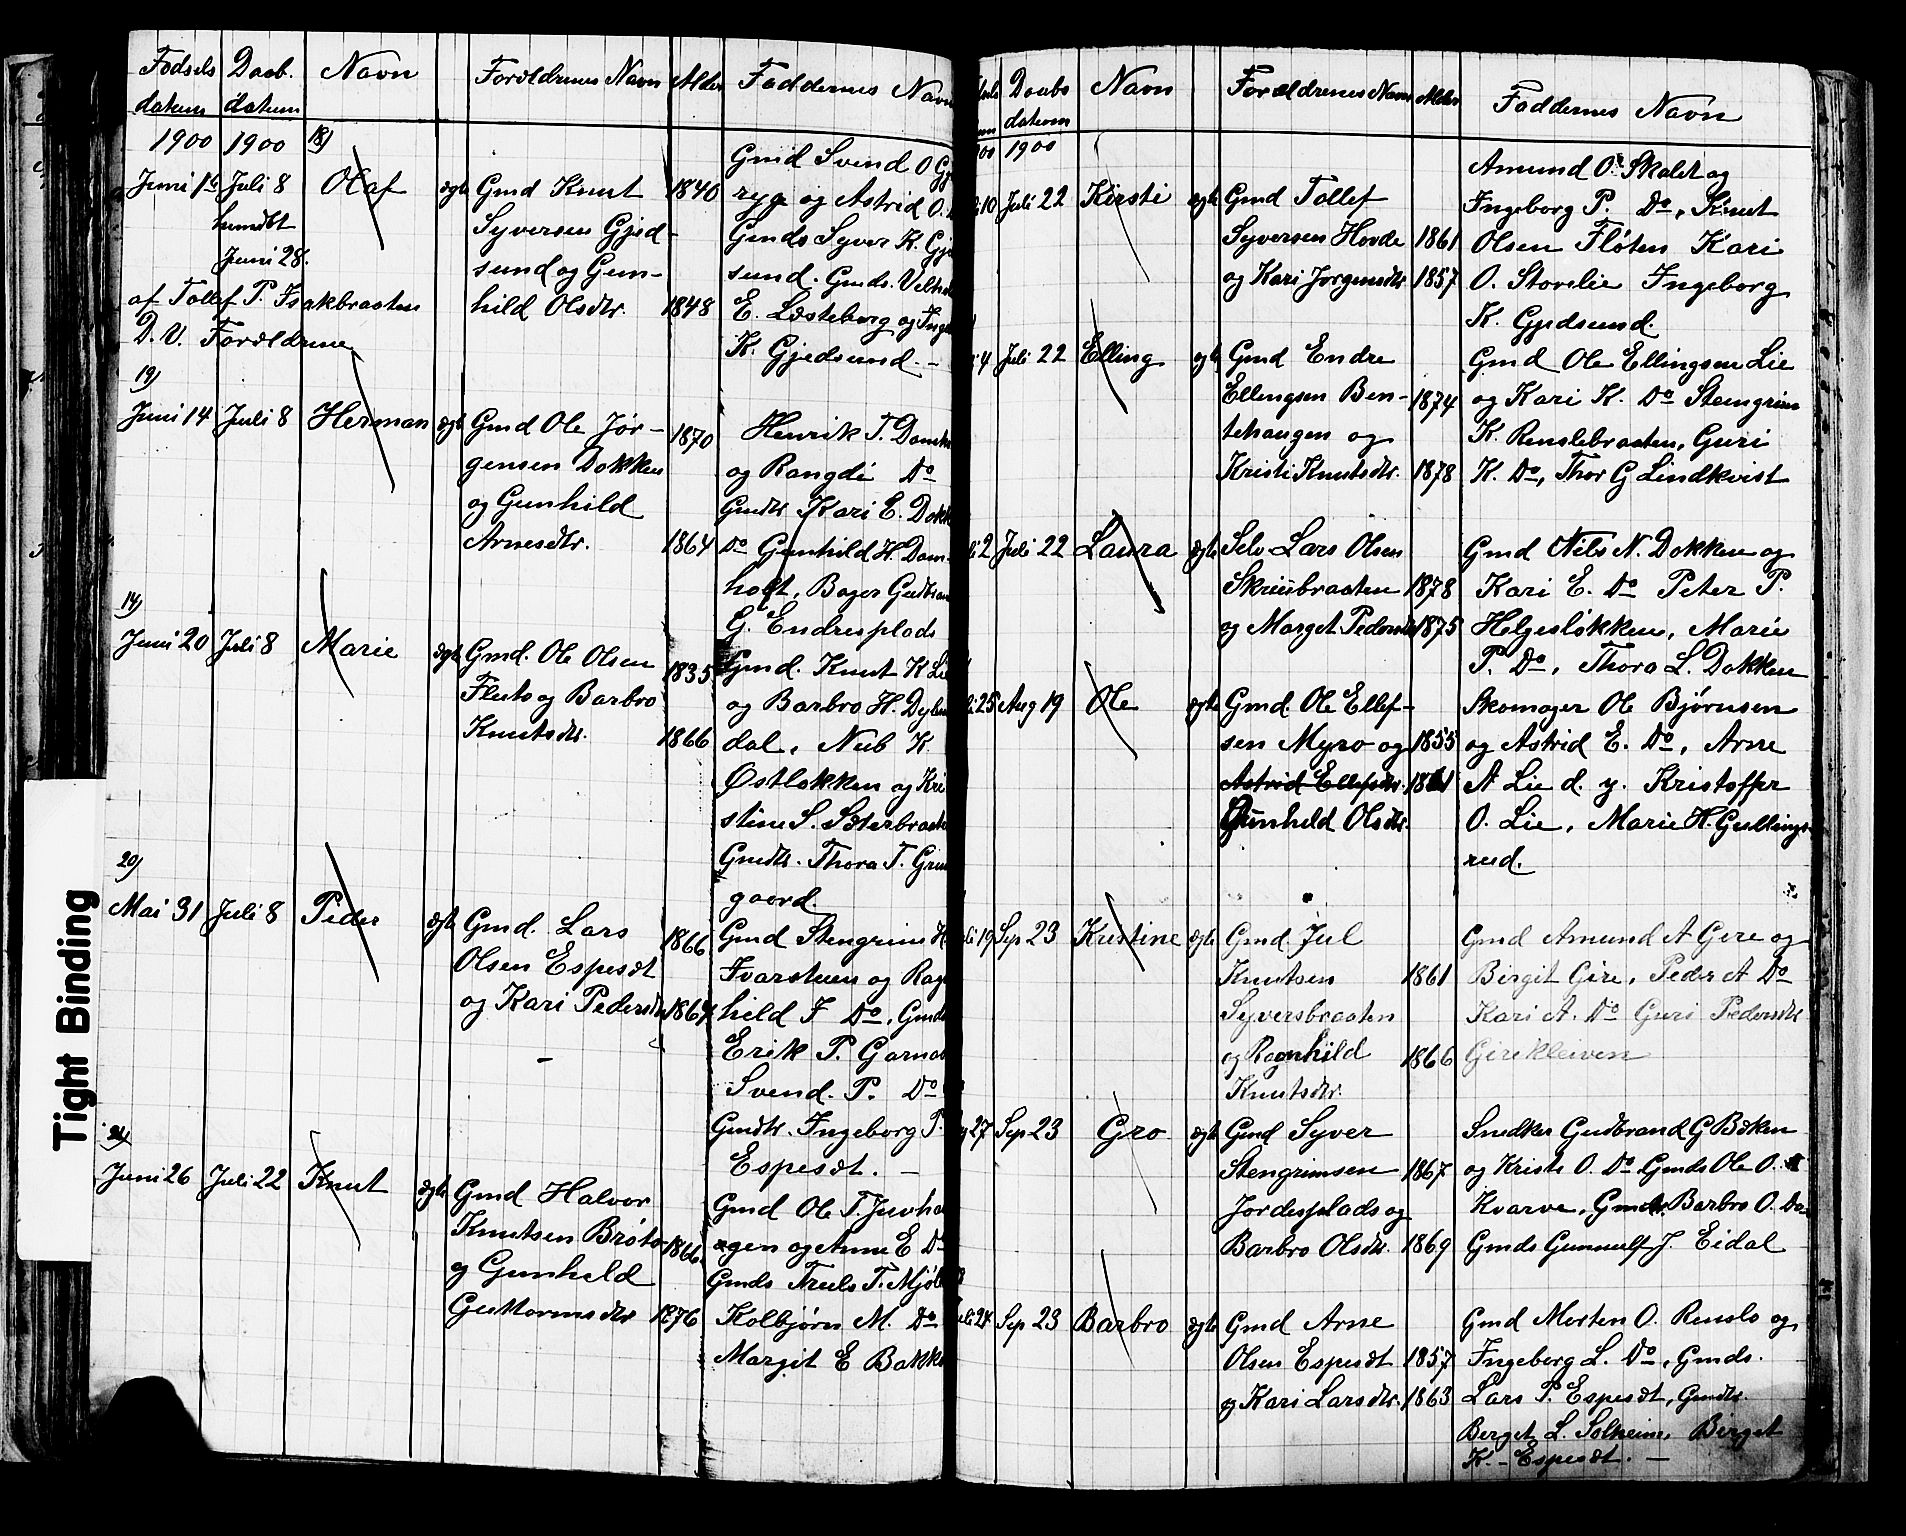 Tight Binding
Fødsels datum Daab. datum Navn Forældrenes Navn Alder Faddernes Navn
1900 1900
18)
Juni 16 Juli 8 Olaf ægte Gmd Knut 1840
hundbt Syversen Gjed-
Juni 28. sund og Gun-
af Tollef P. Isakbraaten hild Olsdtr. 1848
D. V. Forældrene
Gmd Svend O
ryge og Astrid O.
Gmds Syver K.
sund. Gmds.
E. Læsteberg og
K. Gjedsund. –
19)
Juni 14 Juli 8 Herman ægte Gmd Ole Jør- 1870
gensen Dokken
og Gunhild
Arnesdtr. 1864
Henrik T.
og Rangdi Do
Gmdtr Kari E.
Do Gunhild H. Dam-
holt, Bager
G. Endresplads
14)
Juni 20 Juli 8 Marie ægte Gmd. Ole Olsen 1835
Fluto og Barbro
Knutsdtr. 1866
Gmd. Knut K
og Barbro H.
dal, Nub K
Østløkken og Kri
stine S. Sæterbraate
Gmdtr. Thora T.
gaard.
20)
Mai 31 Juli 8 Peder ægte Gmd. Lars 1866
Olsen Espesæt
og Kari Pedersdtr 1864
–
Gmd Stengrim
Ivarstuen og
hild I Do, Gmds
Erik P.
Svend. P. Do
Gmdtr. Ingeborg P.
Espesæt. –
21)
Juni 26 Juli 22 Knut ægte Gmd Halvor
Knutsen Brøto 1866.
og Gunhild
Guttormsdtr 1876
Gmd Ole T. Juvha
ugen og Anne E Do
Gmds Truls T. Mjøl
Kolbjørn M. Do
Margit E Bakke
Daabs datum Navn Forældrenes Navn Alder Faddernes Navn
1900
10 Juli 22 Kirsti ægte Gmd Tollef
Syversen Hovde 1861
og Kari Jørgensdtr 1857
Amund O. Skalet og
Ingeborg P. Do, Knut
Olsen Fløten Kari
O. Storelie Ingeborg
K. Gjedsund.
4 Juli 22 Elling ægte Gmd Endre
Ellingsen Ben- 1874
tehaugen og
Kristi Knutsdtr. 1878
Gmd Ole Ellingsen Lie
og Kari K. Do Stengrim
K. Renslebraaten, Guri
K. Do, Thor G Lindkvist
2 Juli 22 Laura ægte Selv Lars Olsen
Skriusbraaten 1878
og Marget Pedersdtr 1875
Gmd Nils N. Dokken og
Kari E. Do Peter P.
Helgesløkken, Marie
P. Do, Thora L. Dokken
25 Aug 19 Ole ægte Gmd. Ole Ellef-
sen Myro og 1855
Astrid Ellefsdtr. 1861
Gunhild Olsdtr.
Skomager Ole Bjørnsen
og Astrid E. Do, Arne
A Lie d. y. Kristoffer
O. Lie, Marie H. Gullings-
rud.
19 Sep 23 Kristine ægte Gmd. Jul
Knutsen 1861
Syversbraaten
og Ragnhild 1866
Knutsdtr.
Gmd Amund A Gire og
Birgit Gire, Peder A Do
Kari A. Do Guri Pedersdtr
Girekleiven
27 Sep 23 Gro ægte Gmd Syver
Stengrimsen 1867
Jordesplads og
Barbro Olsdtr. 1869
Snedker Gudbrand G Bæken
og Kristi O. Do Gmds Ole O.
Kvarve, Gmdtr. Barbro O. Do
Gmds Gunnulf J. Eidal
24 Sep 23 Barbro ægte Gmd Arne
Olsen Espesæt 1857
og Kari Larsdtr. 1863
Gmd Morten O. Renslo og
Ingeborg L. Do, Gmds.
Lars P. Espesæt, Gmdtr.
Berget L. Solheim, Birget
K. – Espesæt. –